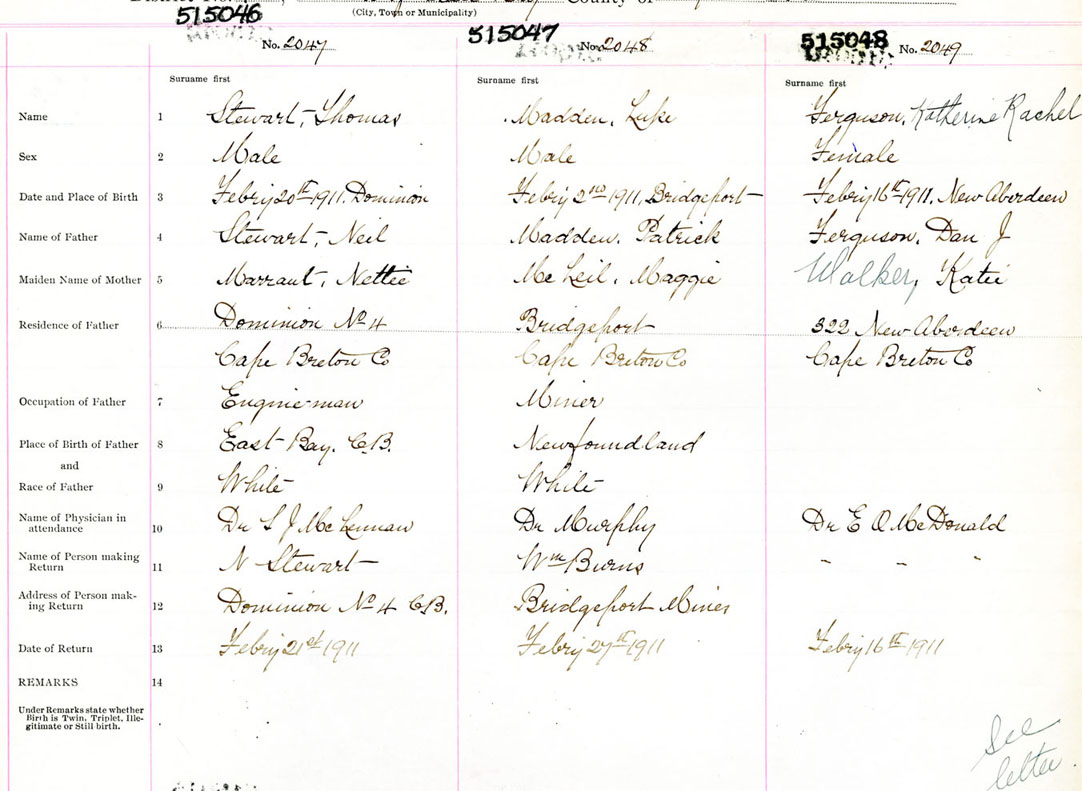 (City, Town or Municipality)
515046 515047 515048
No. 2047 No. 2048 No. 2049
Surname first Surname first Surname first
Name 1 Stewart, Thomas Madden, Luke Ferguson, Katherine Rachel
Sex 2 Male Male Female
Date and Place of Birth 3 Febry 20th 1911. Dominion Febry 2nd 1911, Bridgeport Febry 16th 1911. New Aberdeen
Name of Father 4 Stewart, Neil Madden, Patrick Ferguson, Dan J
Maiden Name of Mother 5 Marraut, Nettie Mc Leil, Maggie Walker, Katie
Residence of Father 6 Dominion No 4 Bridgeport 322 New Aberdeen
Cape Breton Co Cape Breton Co Cape Breton Co
Occupation of Father 7 Engine man Miner
Place of Birth of Father 8 East Bay. C.B. Newfoundland
and
Race of Father 9 White White
Name of Physician in attendance 10 Dr S J McLennan Dr Murphy Dr E O McDonald
Name of Person making Return 11 N Stewart Wm Burns " " "
Address of Person mak-
ing Return 12 Dominion No 4 C.B. Bridgeport Mines
Date of Return 13 Febry 21st 1911 Febry 27th 1911 Febry 16th 1911
REMARKS 14
Under Remarks state whether
Birth is Twin, Triplet, Ille-
gitimate or Still birth.
See
letter.